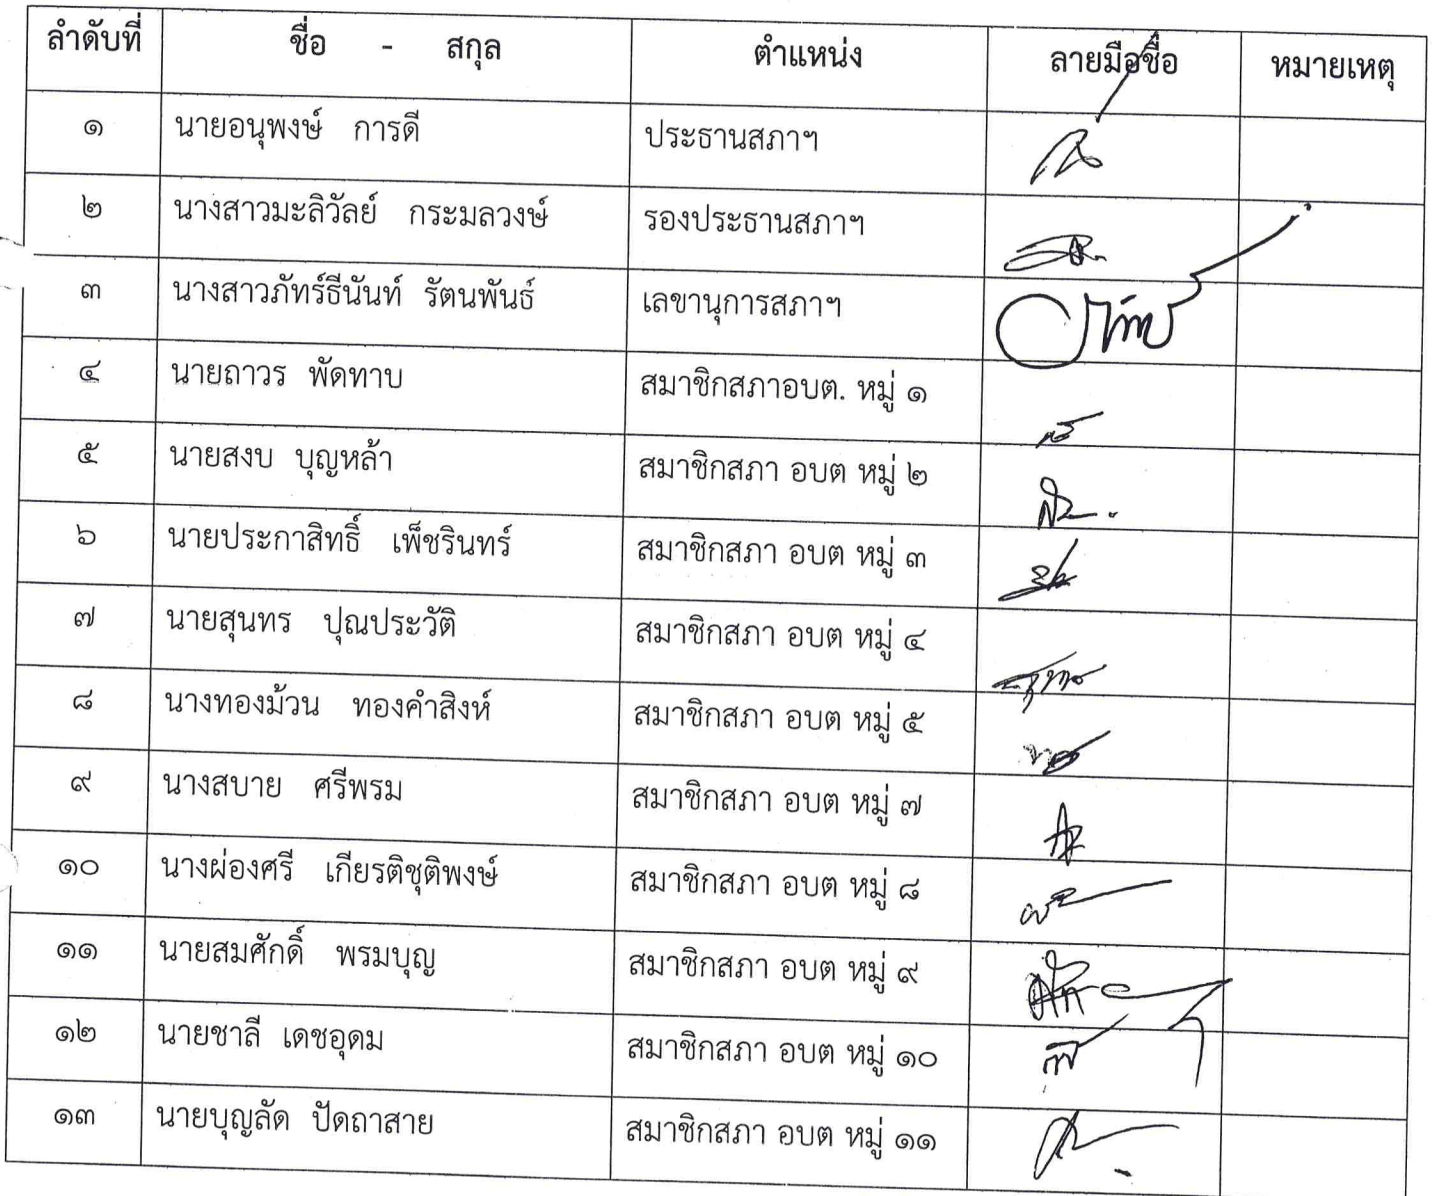 ลำดับที่ ชื่อ - สกุล ตำแหน่ง ลายมือชื่อ หมายเหตุ
๑ นายอนุพงษ์ การดี ประธานสภาฯ
๒ นางสาวมะลิวัลย์ กระมลวงษ์ รองประธานสภาฯ
๓ นางสาวภัทร์ธีนันท์ รัตนพันธ์ เลขานุการสภาฯ
๔ นายถาวร พัดทาบ สมาชิกสภาอบต. หมู่ ๑
๕ นายสงบ บุญหล้า สมาชิกสภา อบต หมู่ ๒
๖ นายประกาสิทธิ์ เพ็ชรินทร์ สมาชิกสภา อบต หมู่ ๓
๗ นายสุนทร ปุณประวัติ สมาชิกสภา อบต หมู่ ๔
๘ นางทองม้วน ทองคำสิงห์ สมาชิกสภา อบต หมู่ ๕
๙ นางสบาย ศรีพรม สมาชิกสภา อบต หมู่ ๗
๑๐ นางผ่องศรี เกียรติชุติพงษ์ สมาชิกสภา อบต หมู่ ๘
๑๑ นายสมศักดิ์ พรมบุญ สมาชิกสภา อบต หมู่ ๙
๑๒ นายชาลี เดชอุดม สมาชิกสภา อบต หมู่ ๑๐
๑๓ นายบุญลัด ปัดถาสาย สมาชิกสภา อบต หมู่ ๑๑